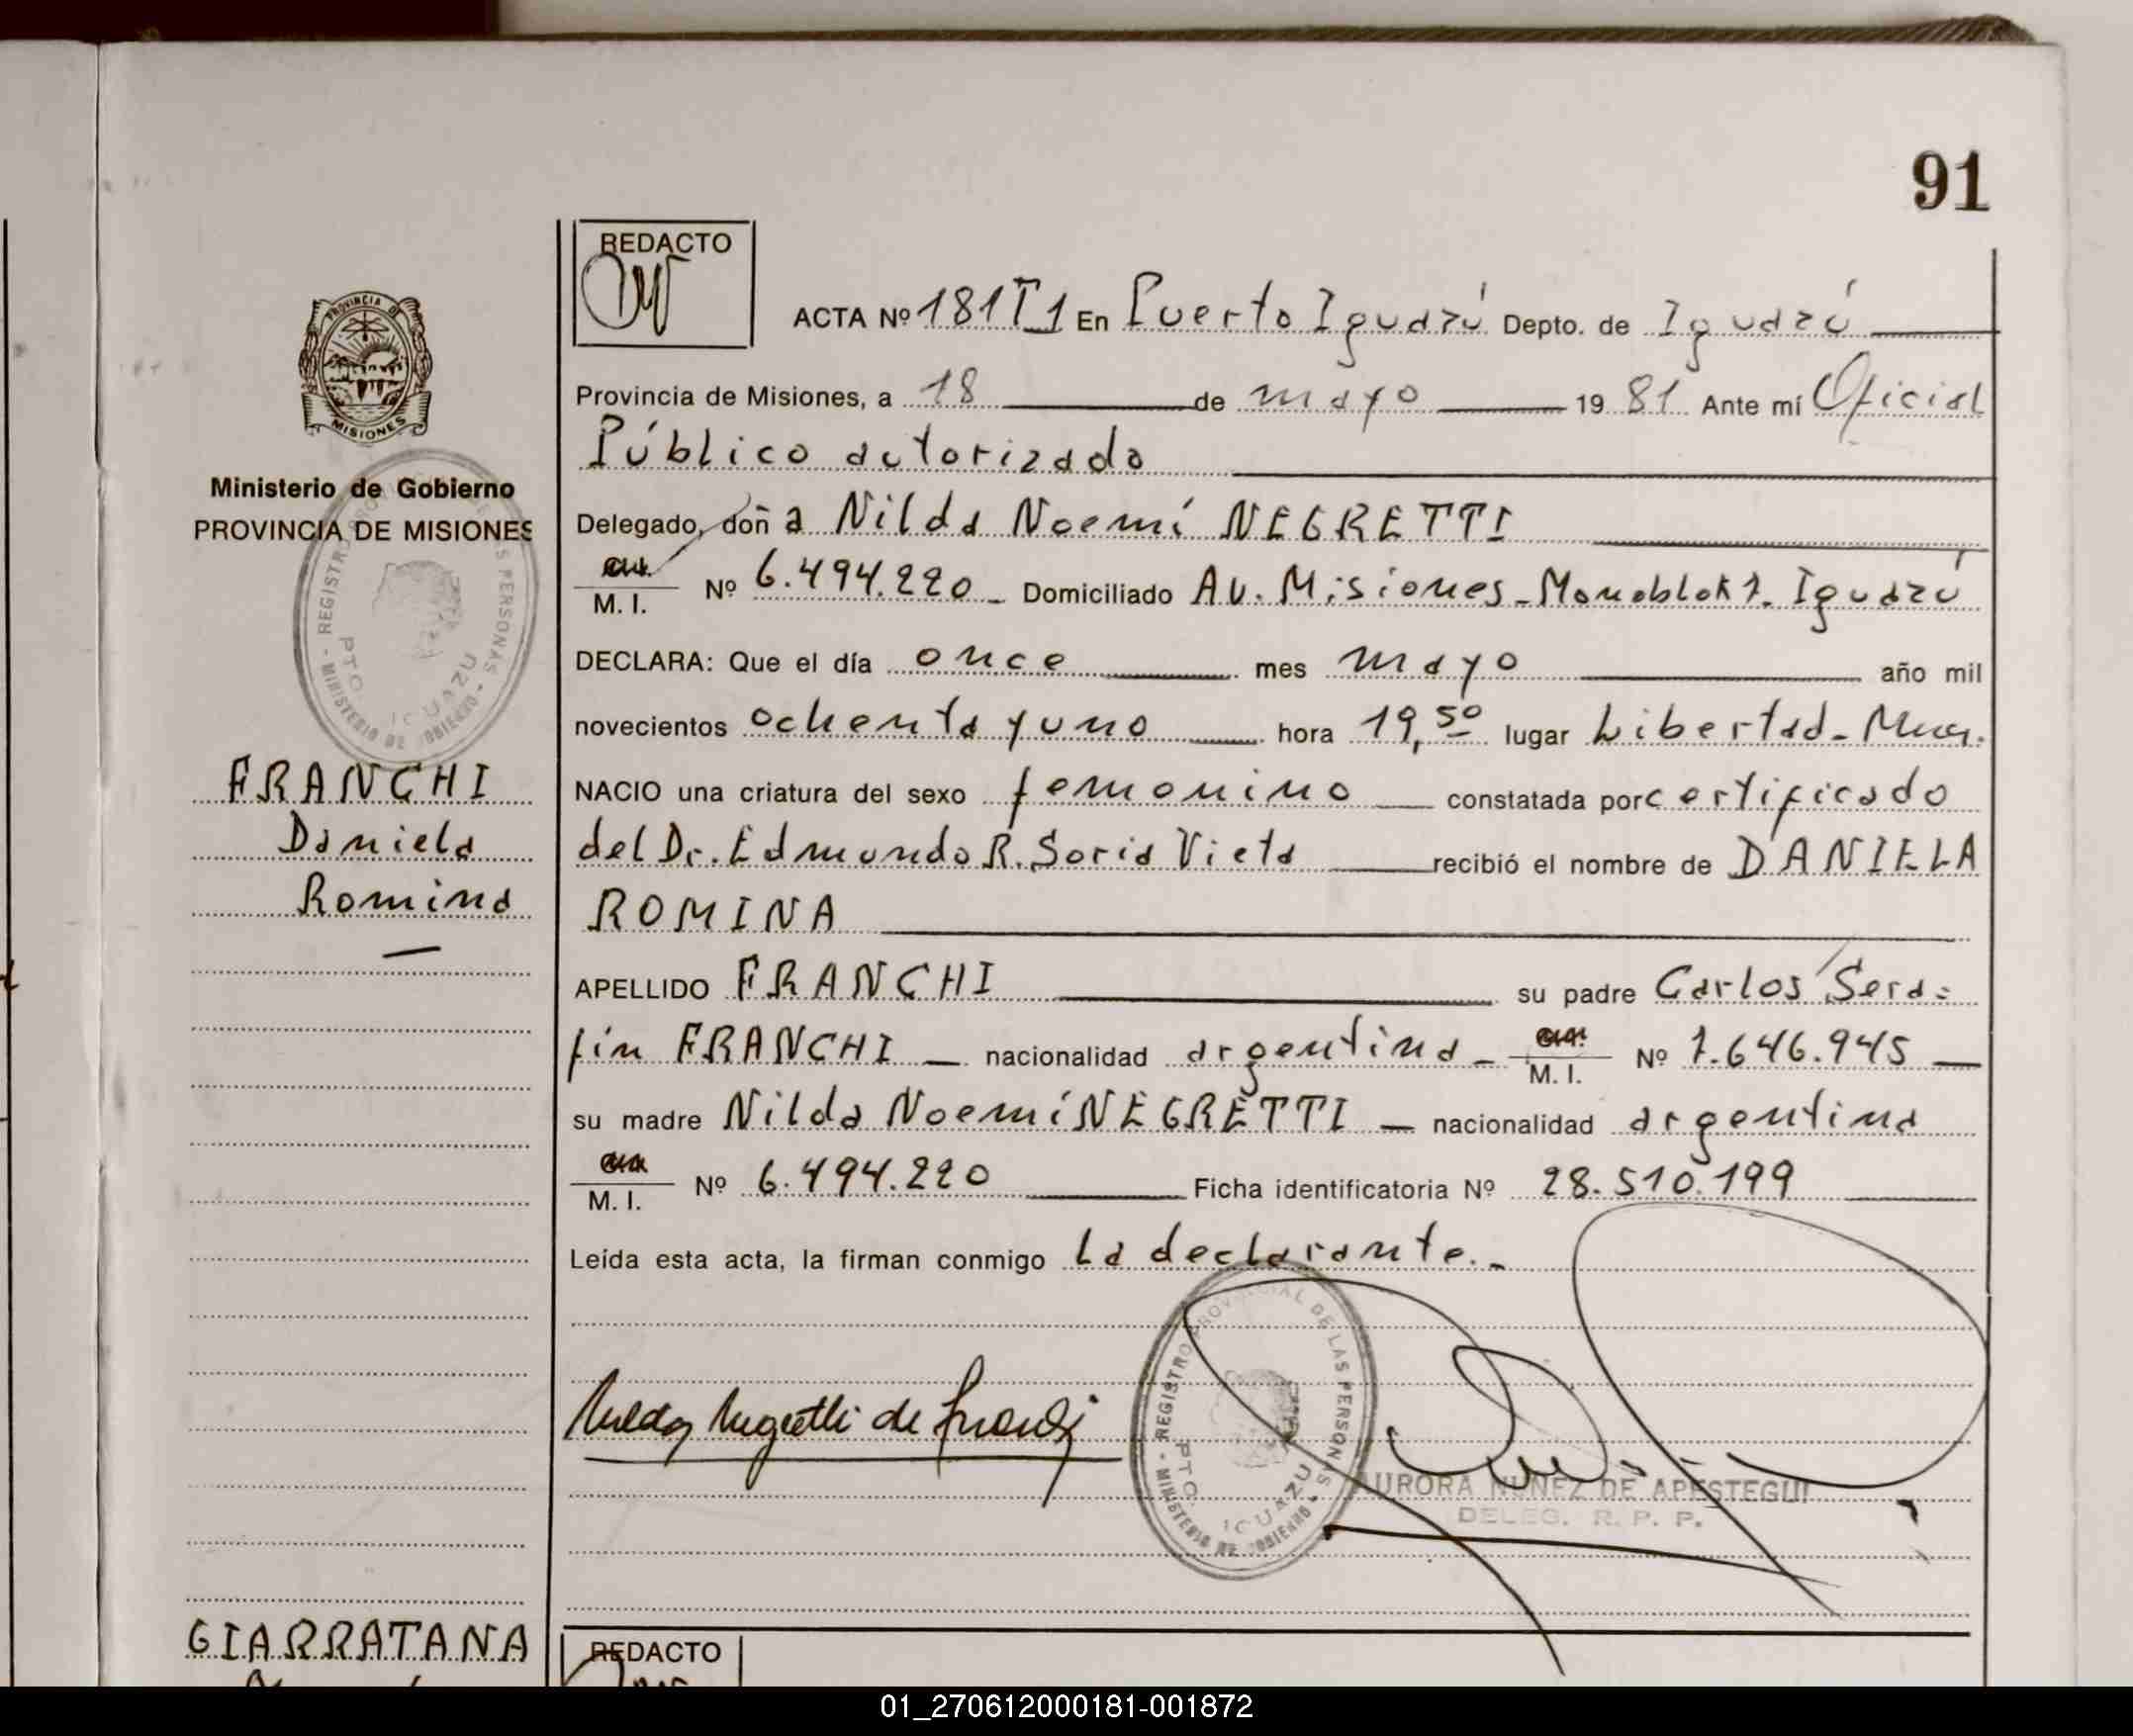 91
REDACTO
ACTA Nº 181T1 En Puerto Iguazú Depto. de Iguazú
Provincia de Misiones, a 18 de mayo 1981 Ante mí Oficial
Público autorizado
Delegado, doña Nilda Noemí NEGRETTI
M. I. Nº 6.494.220 Domiciliado Av. Misiones - Monoblok 1. Iguazú
DECLARA: Que el día once mes mayo año mil
novecientos ochenta y uno hora 19,50 lugar Libertad -
NACIO una criatura del sexo femenino constatada por certificado
del Dr. Edmundo R. Soria Vieta recibió el nombre de DANIELA
ROMINA
APELLIDO FRANCHI su padre Carlos Sera=
fin FRANCHI nacionalidad argentina - M. I. Nº 7.646.945
su madre Nilda Noemí NEGRETTI nacionalidad argentina
M. I. Nº 6.494.220 Ficha identificatoria Nº 28.510.199
Leída esta acta, la firman conmigo La declarante.-
PROVINCIA DE
MISIONES
Ministerio de Gobierno
PROVINCIA DE MISIONES
FRANCHI
Daniela
Romina
Nilda Negretti de Franchi
REGISTRO PROVINCIAL DE LAS PERSONAS - MINISTERIO DE GOBIERNO -
PTO. IGUAZU
AURORA NUÑEZ DE APESTEGUI
DELEG. R. P. P.
GIARRATANA
REDACTO
01_270612000181-001872